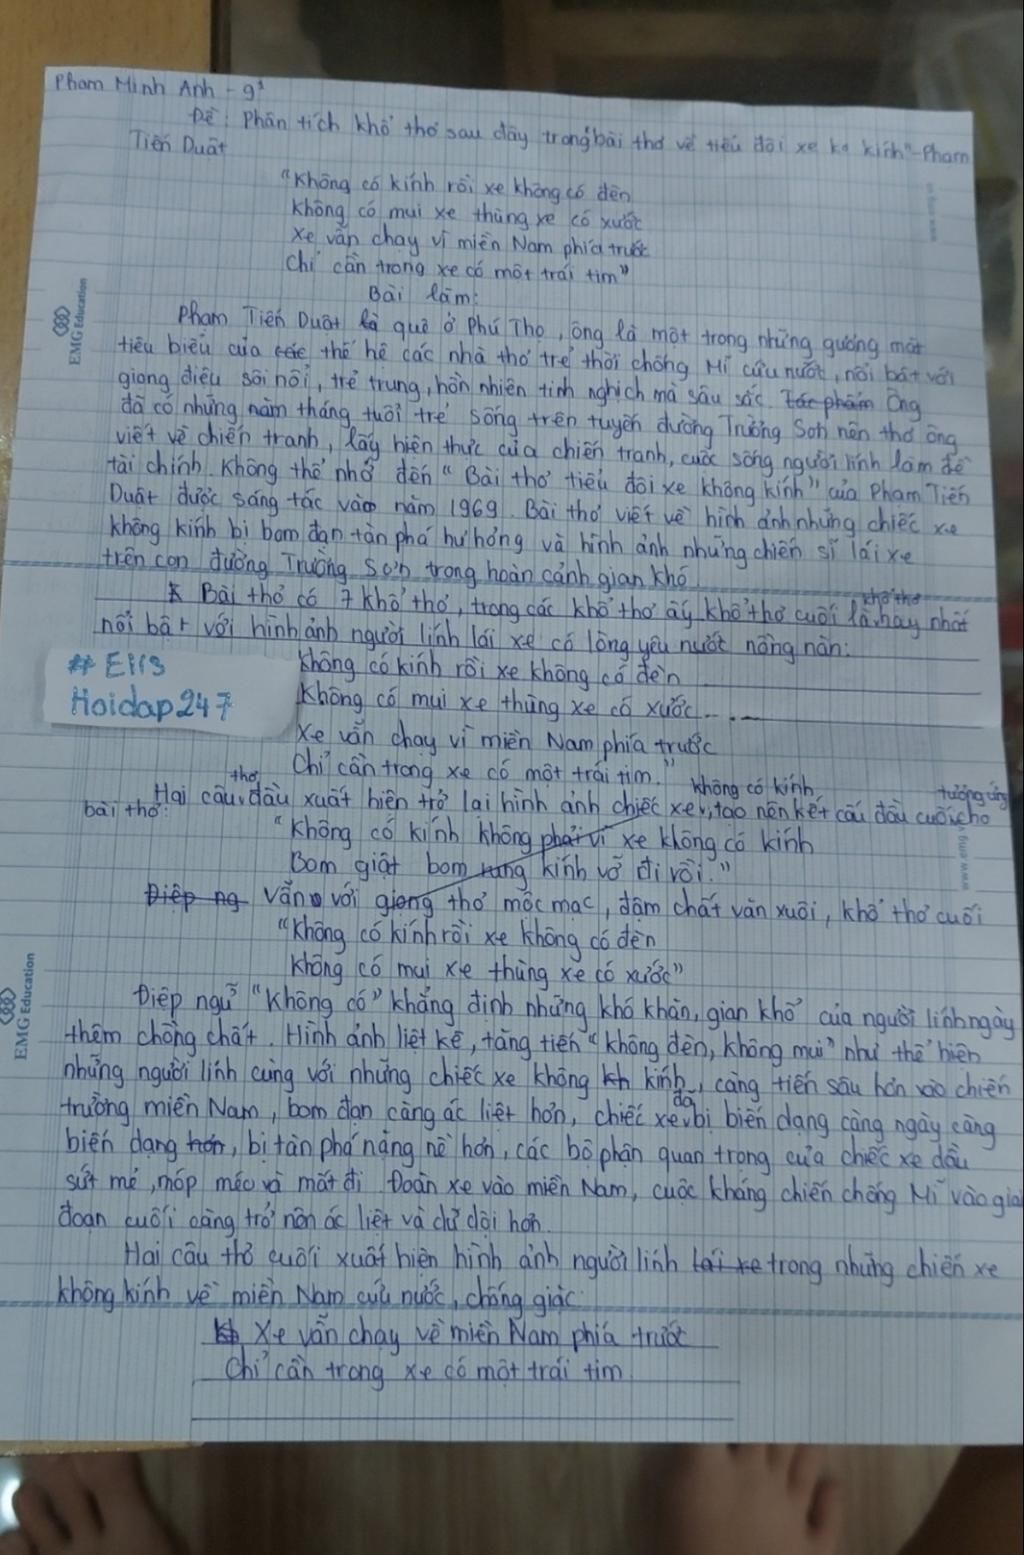 Phạm Minh Anh - 9¹
Đề: Phân tích khổ thơ sau đây trong "bài thơ về tiểu đội xe ko kính" - Phạm
Tiến Duật
"Không có kính rồi xe không có đèn
Không có mui xe thùng xe có xước
Xe vẫn chạy vì miền Nam phía trước
Chỉ cần trong xe có một trái tim"
Bài làm:
Phạm Tiến Duật là quê ở Phú Thọ, ông là một trong những gương mặt
tiêu biểu của các thế hệ các nhà thơ trẻ thời chống Mĩ cứu nước, nổi bật với
giọng điệu sôi nổi, trẻ trung, hồn nhiên tinh nghịch mà sâu sắc. Tác phẩm Ông
đã có những năm tháng tuổi trẻ sống trên tuyến đường Trường Sơn nên thơ ông
viết về chiến tranh, lấy hiện thực của chiến tranh, cuộc sống người lính làm đề
tài chính. Không thể nhớ đến "Bài thơ tiểu đội xe không kính" của Phạm Tiến
Duật được sáng tác vào năm 1969. Bài thơ viết về hình ảnh những chiếc xe
không kính bị bom đạn tàn phá hư hỏng và hình ảnh những chiến sĩ lái xe
trên con đường Trường Sơn trong hoàn cảnh gian khó.
Bài thơ có 7 khổ thơ, trong các khổ thơ ấy khổ thơ cuối là khổ thơ hay nhất
nổi bật với hình ảnh người lính lái xe có lòng yêu nước nồng nàn:
Không có kính rồi xe không có đèn
Không có mui xe thùng xe có xước...
Xe vẫn chạy vì miền Nam phía trước
Chỉ cần trong xe có một trái tim."
Hai câu thơ đầu xuất hiện trở lại hình ảnh chiếc xe không có kính, tạo nên kết cấu đầu cuối tương ứng cho
bài thơ:
"Không có kính không phải vì xe không có kính
Bom giật bom rung kính vỡ đi rồi."
Điệp ng Vẫn với giọng thơ mộc mạc, đậm chất văn xuôi, khổ thơ cuối
"Không có kính rồi xe không có đèn
Không có mui xe thùng xe có xước"
Điệp ngữ "Không có" khẳng định những khó khăn, gian khổ của người lính ngày
thêm chồng chất. Hình ảnh liệt kê, tăng tiến "không đèn, không mui" như thể hiện
những người lính cùng với những chiếc xe không kh kính, càng tiến sâu hơn vào chiến
trường miền Nam, bom đạn càng ác liệt hơn, chiếc xe đã bị biến dạng càng ngày càng
biến dạng hơn, bị tàn phá nặng nề hơn, các bộ phận quan trọng của chiếc xe dầu
sứt mẻ, móp méo và mất đi. Đoàn xe vào miền Nam, cuộc kháng chiến chống Mĩ vào giai
đoạn cuối càng trở nên ác liệt và dữ dội hơn.
Hai câu thơ cuối xuất hiện hình ảnh người lính lái xe trong những chiến xe
không kính về miền Nam cứu nước, chống giặc:
Kh Xe vẫn chạy về miền Nam phía trước
Chỉ cần trong xe có một trái tim.
# Ells
Hoidap247
EMG Education
EMG Education